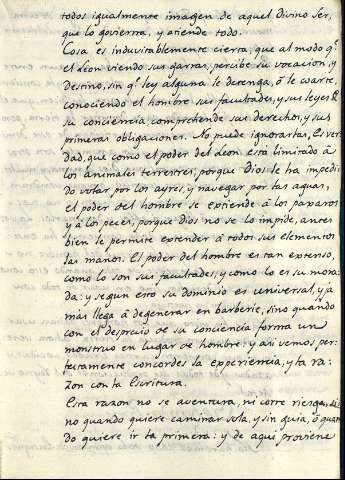 todos igualmente imagen de aquel divino Ser,
que lo govierra, y atiende todo.
Cosa es induvitablemente cierta, que al modo q.e
el Leon viendo sus garras, percibe su vocacion, y
Destino, sin q.e ley alguna le detenga, ô le coarte,
conociendo el hombre sus facultades, y sus leyes &
su conciencia, comprehende sus derechos, y sus
primeras obligaciones. No puede ignorarlas, Es ver-
dad, que como el poder del Leon está limitado â
los animales terrestres, porque Dios le ha impedi-
do votar por los ayres, y navegar por las aguas,
el poder del hombre se extiende â los paxaros
y â los peces, porque Dios no se lo impide, antes
bien le permite extender â todos sus elementos
las manos. El poder del hombre es tan extenso,
como lo son sus facultades, y como lo es su mora-
da: y segun esto su dominio es universal, y ja
más llega â degenerar en barberie, sino quando
con el desprecio de su conciencia forma un
monstruo en lugar de hombre: y asi vemos per-
fectamente concordes la experiencia, y la ra-
zon con la Escritura.
Esta razon no se aventura, ni corre riesgo, si
no quando quiere caminar sola, y sin guia, ô quan
do quiere ir la primera: y de aqui proviene